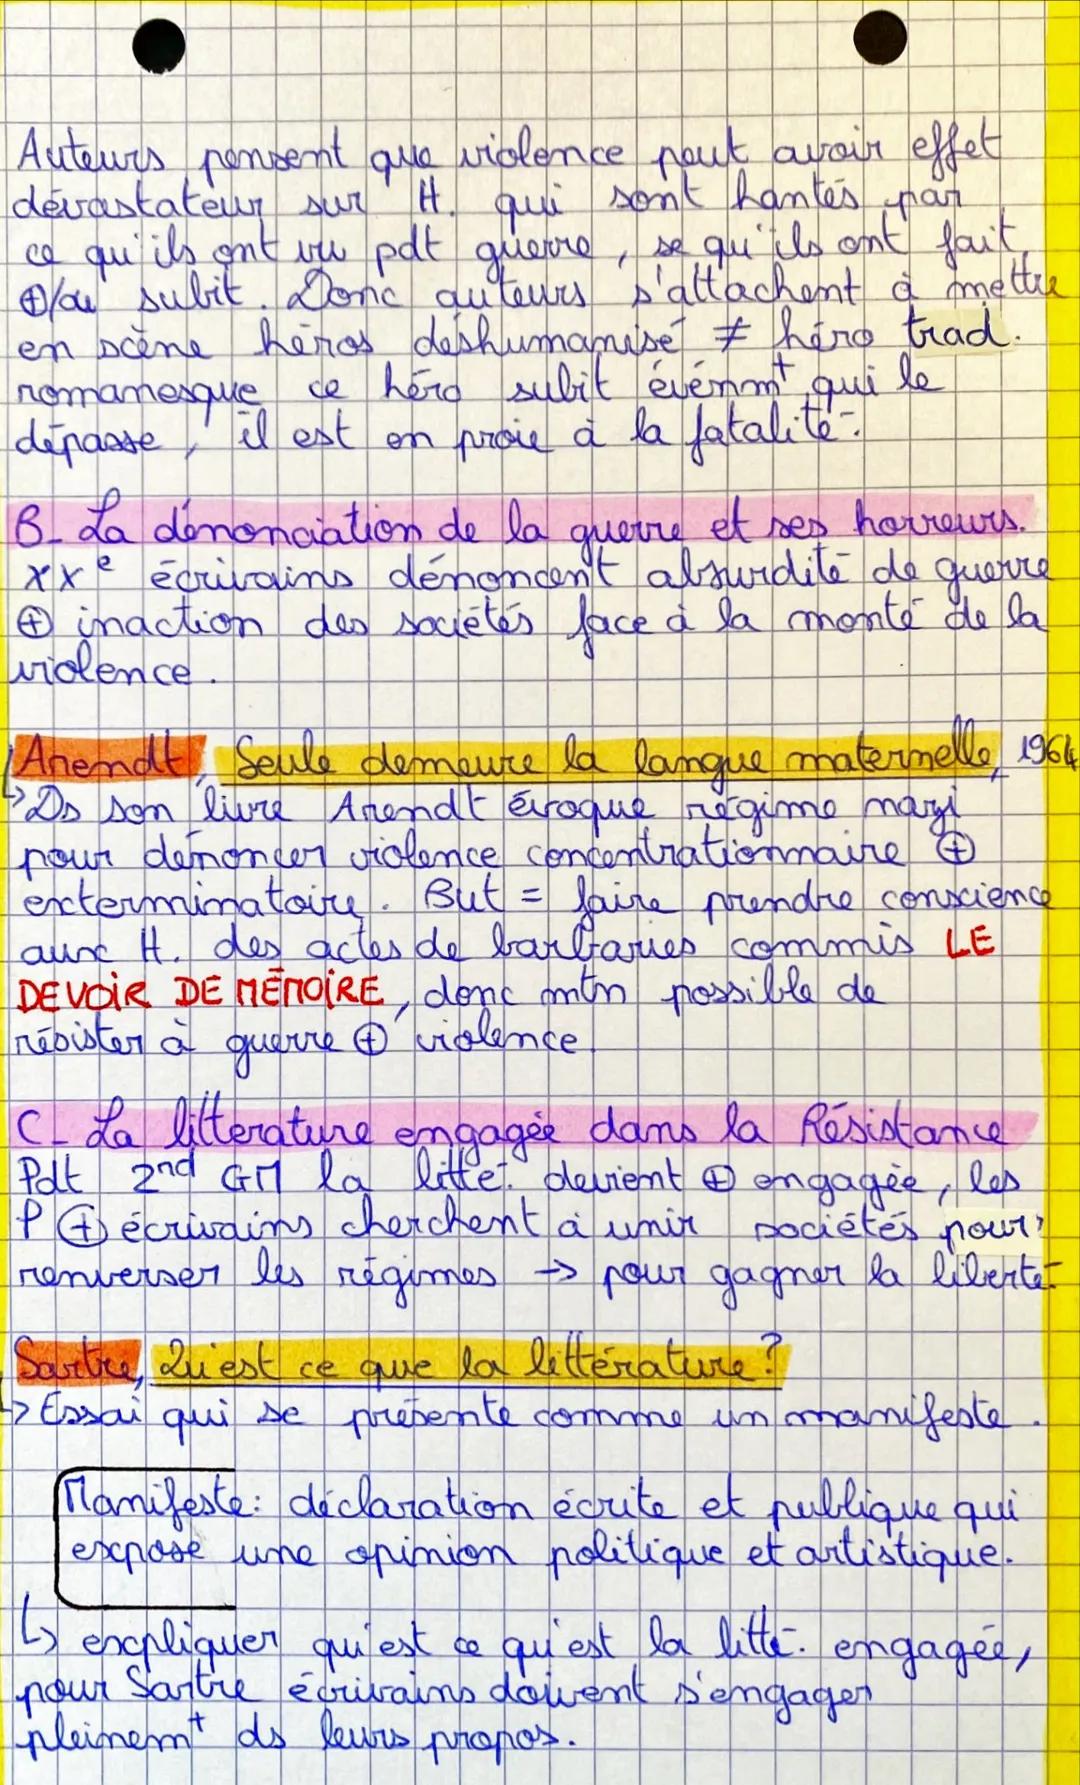 Auteurs pensent que violence peut avoir effet
dévastateur sur H. qui sont hantés par
ce qu'ils ont vu pdt guerre, se qu'ils ont fait
⊕/ou subit. Donc auteurs s'attachent à mettre
en scène héros déshumanisé ≠ héro trad.
romanesque ce héro subit événmt qui le
dépasse, il est en proie à la fatalité.
B- La dénonciation de la guerre et ses horreurs.
XXe écrivains dénoncent absurdité de guerre
⊕ inaction des sociétés face à la monté de la
violence.
Arendt, Seule demeure la langue maternelle, 1964
↳ Ds son livre Arendt évoque régime nazi
pour dénoncer violence concentrationnaire ⊕
exterminatoire. But = faire prendre conscience
aux H. des actes de barbaries commis LE
DEVOIR DE MÉMOIRE, donc mtn possible de
résister à guerre ⊕ violence.
C- La litterature engagée dans la Résistance
Pdt 2nd GM la litté. devient ⊕ engagée, les
P ⊕ écrivains cherchent à unir sociétés pour
renverser les régimes → pour gagner la liberté
Sartre, Qu'est ce que la littérature?
↳ Essai qui se présente comme un manifeste.
Manifeste: déclaration écrite et publique qui
expose une opinion politique et artistique.
↳ expliquer qu'est ce qu'est la litté. engagée,
pour Sartre écrivains doivent s'engager
pleinemt ds leurs propos.